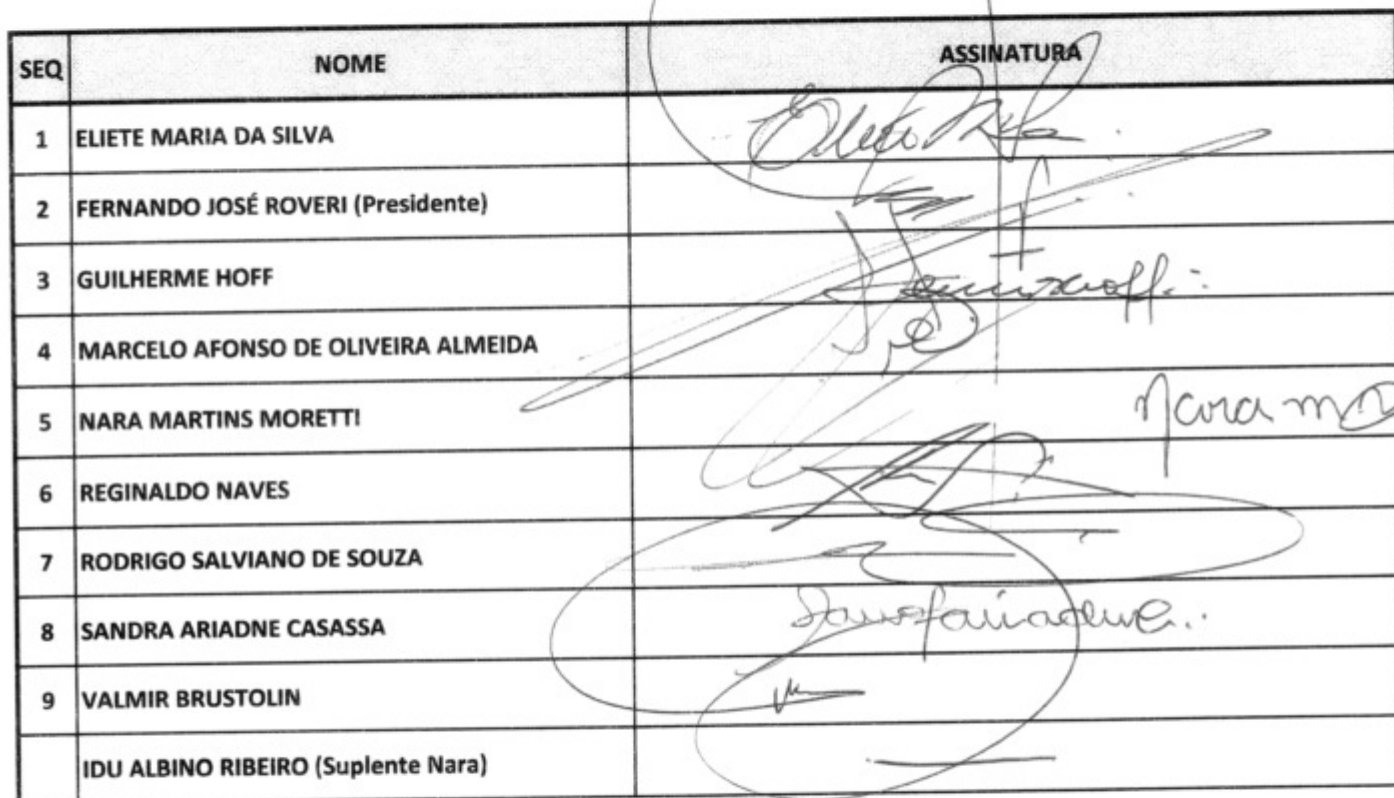 SEQ NOME ASSINATURA
1 ELIETE MARIA DA SILVA
2 FERNANDO JOSÉ ROVERI (Presidente)
3 GUILHERME HOFF
4 MARCELO AFONSO DE OLIVEIRA ALMEIDA
5 NARA MARTINS MORETTI Nara
6 REGINALDO NAVES
7 RODRIGO SALVIANO DE SOUZA
8 SANDRA ARIADNE CASASSA
9 VALMIR BRUSTOLIN
IDU ALBINO RIBEIRO (Suplente Nara)